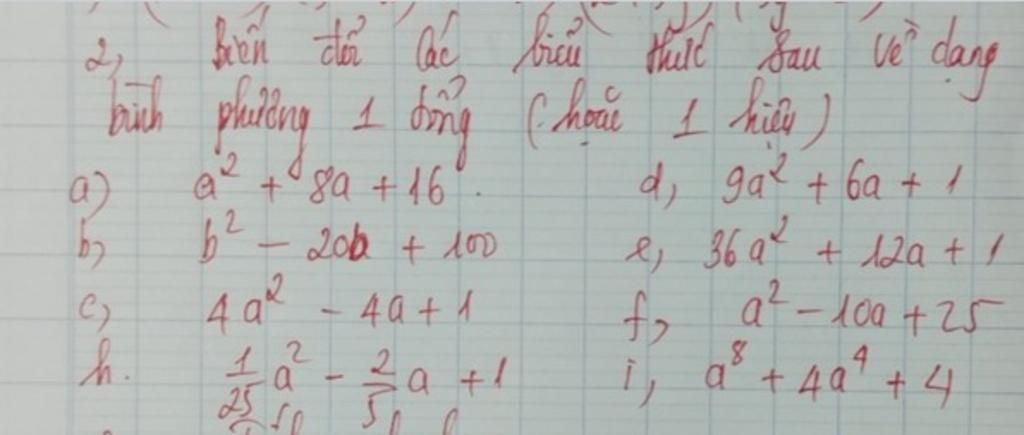 2, Biến đổi các biểu thức sau về dạng
bình phương 1 tổng (hoặc 1 hiệu)
a) a² + 8a + 16. d, 9a² + 6a + 1
b, b² - 20b + 100 e, 36a² + 12a + 1
c, 4a² - 4a + 1 f, a² - 10a + 25
h. 1/25 a² - 2/5 a + 1 i, a⁸ + 4a⁴ + 4